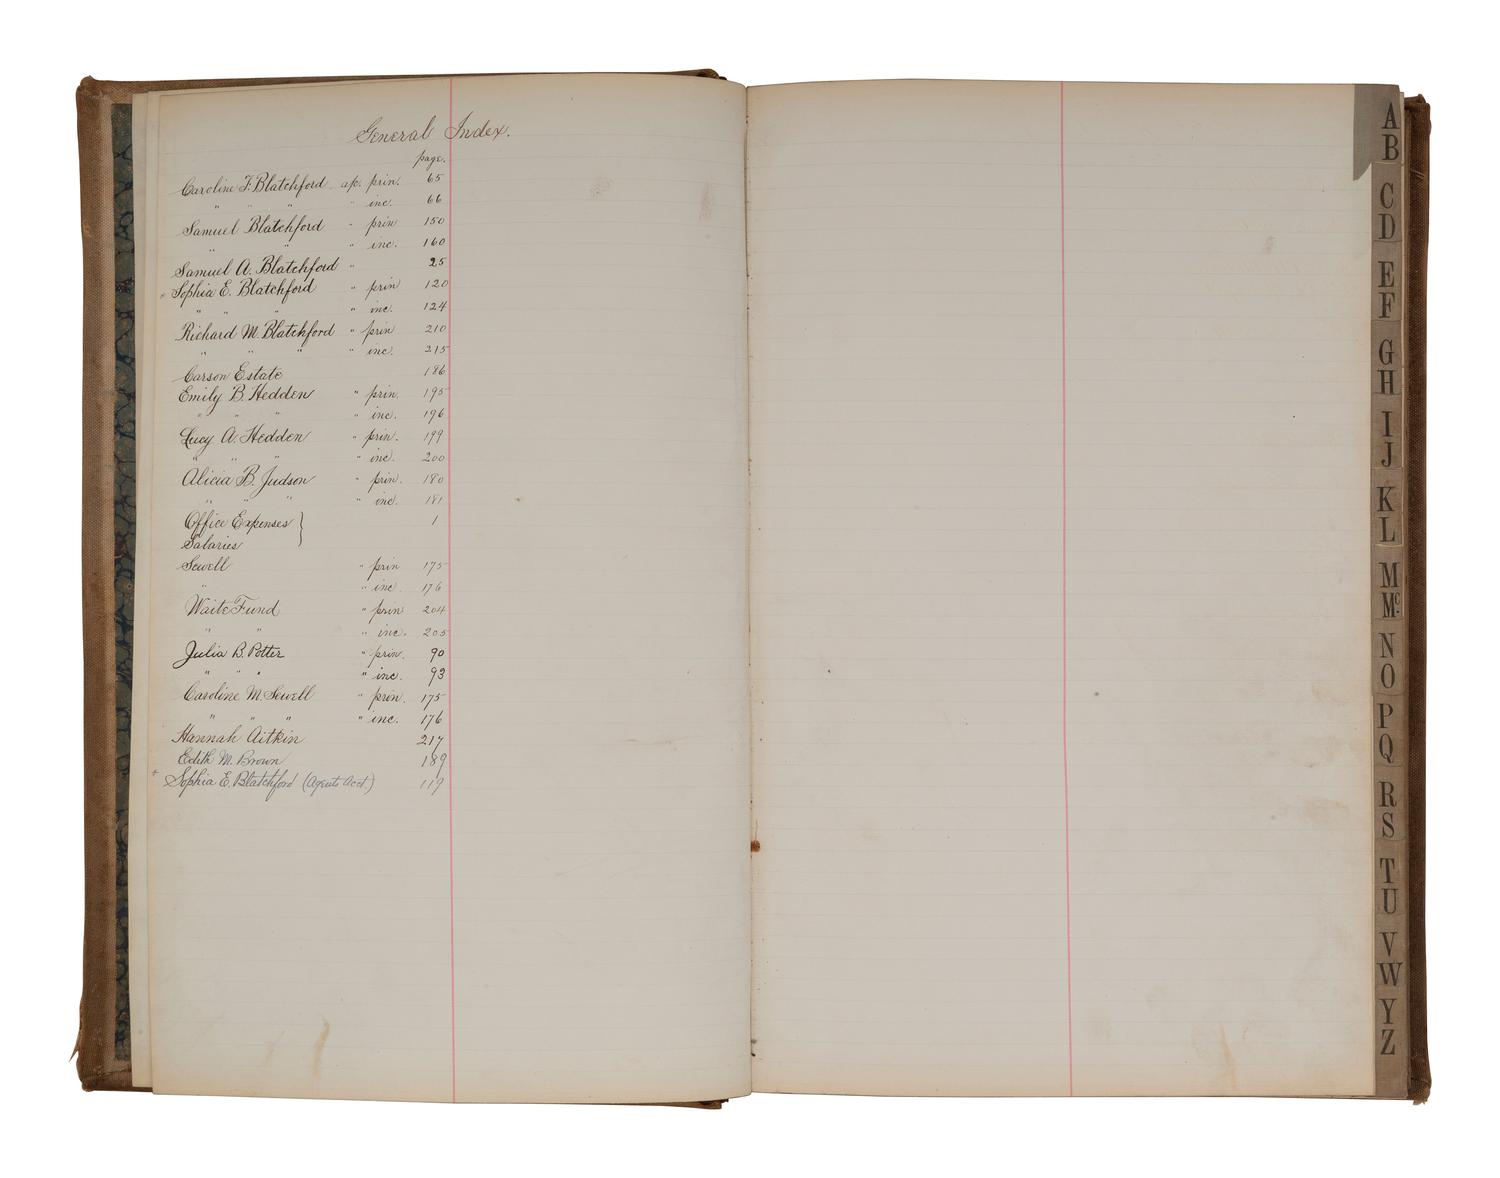 General Index.
page.
Caroline F. Blatchford ap. prin. 65
" " " " inc. 66
Samuel Blatchford " prin 150
" " " inc. 160
Samuel A. Blatchford " 25
Sophia E. Blatchford " prin 120
" " " " inc. 124
Richard M. Blatchford " prin 210
" " " " inc. 215
Carson Estate 186
Emily B. Hedden " prin. 195
" " " " inc. 196
Lucy A. Hedden " prin. 199
" " " " inc. 200
Alicia B. Judson " prin. 180
" " " " inc. 181
Office Expenses } 1
Salaries
Sewell " prin 175
" " inc. 176
Waite Fund " prin 204
" " " inc. 205
Julia B. Potter " prin. 90
" " " " inc. 93
Caroline M. Sewell " prin. 175
" " " " inc. 176
Hannah Aitkin 217
Edith M. Brown 189
+ Sophia E. Blatchford (Agents Acct.) 119
A
B
C
D
E
F
G
H
I
J
K
L
M
Mc.
N
O
P
Q
R
S
T
U
V
W
Y
Z